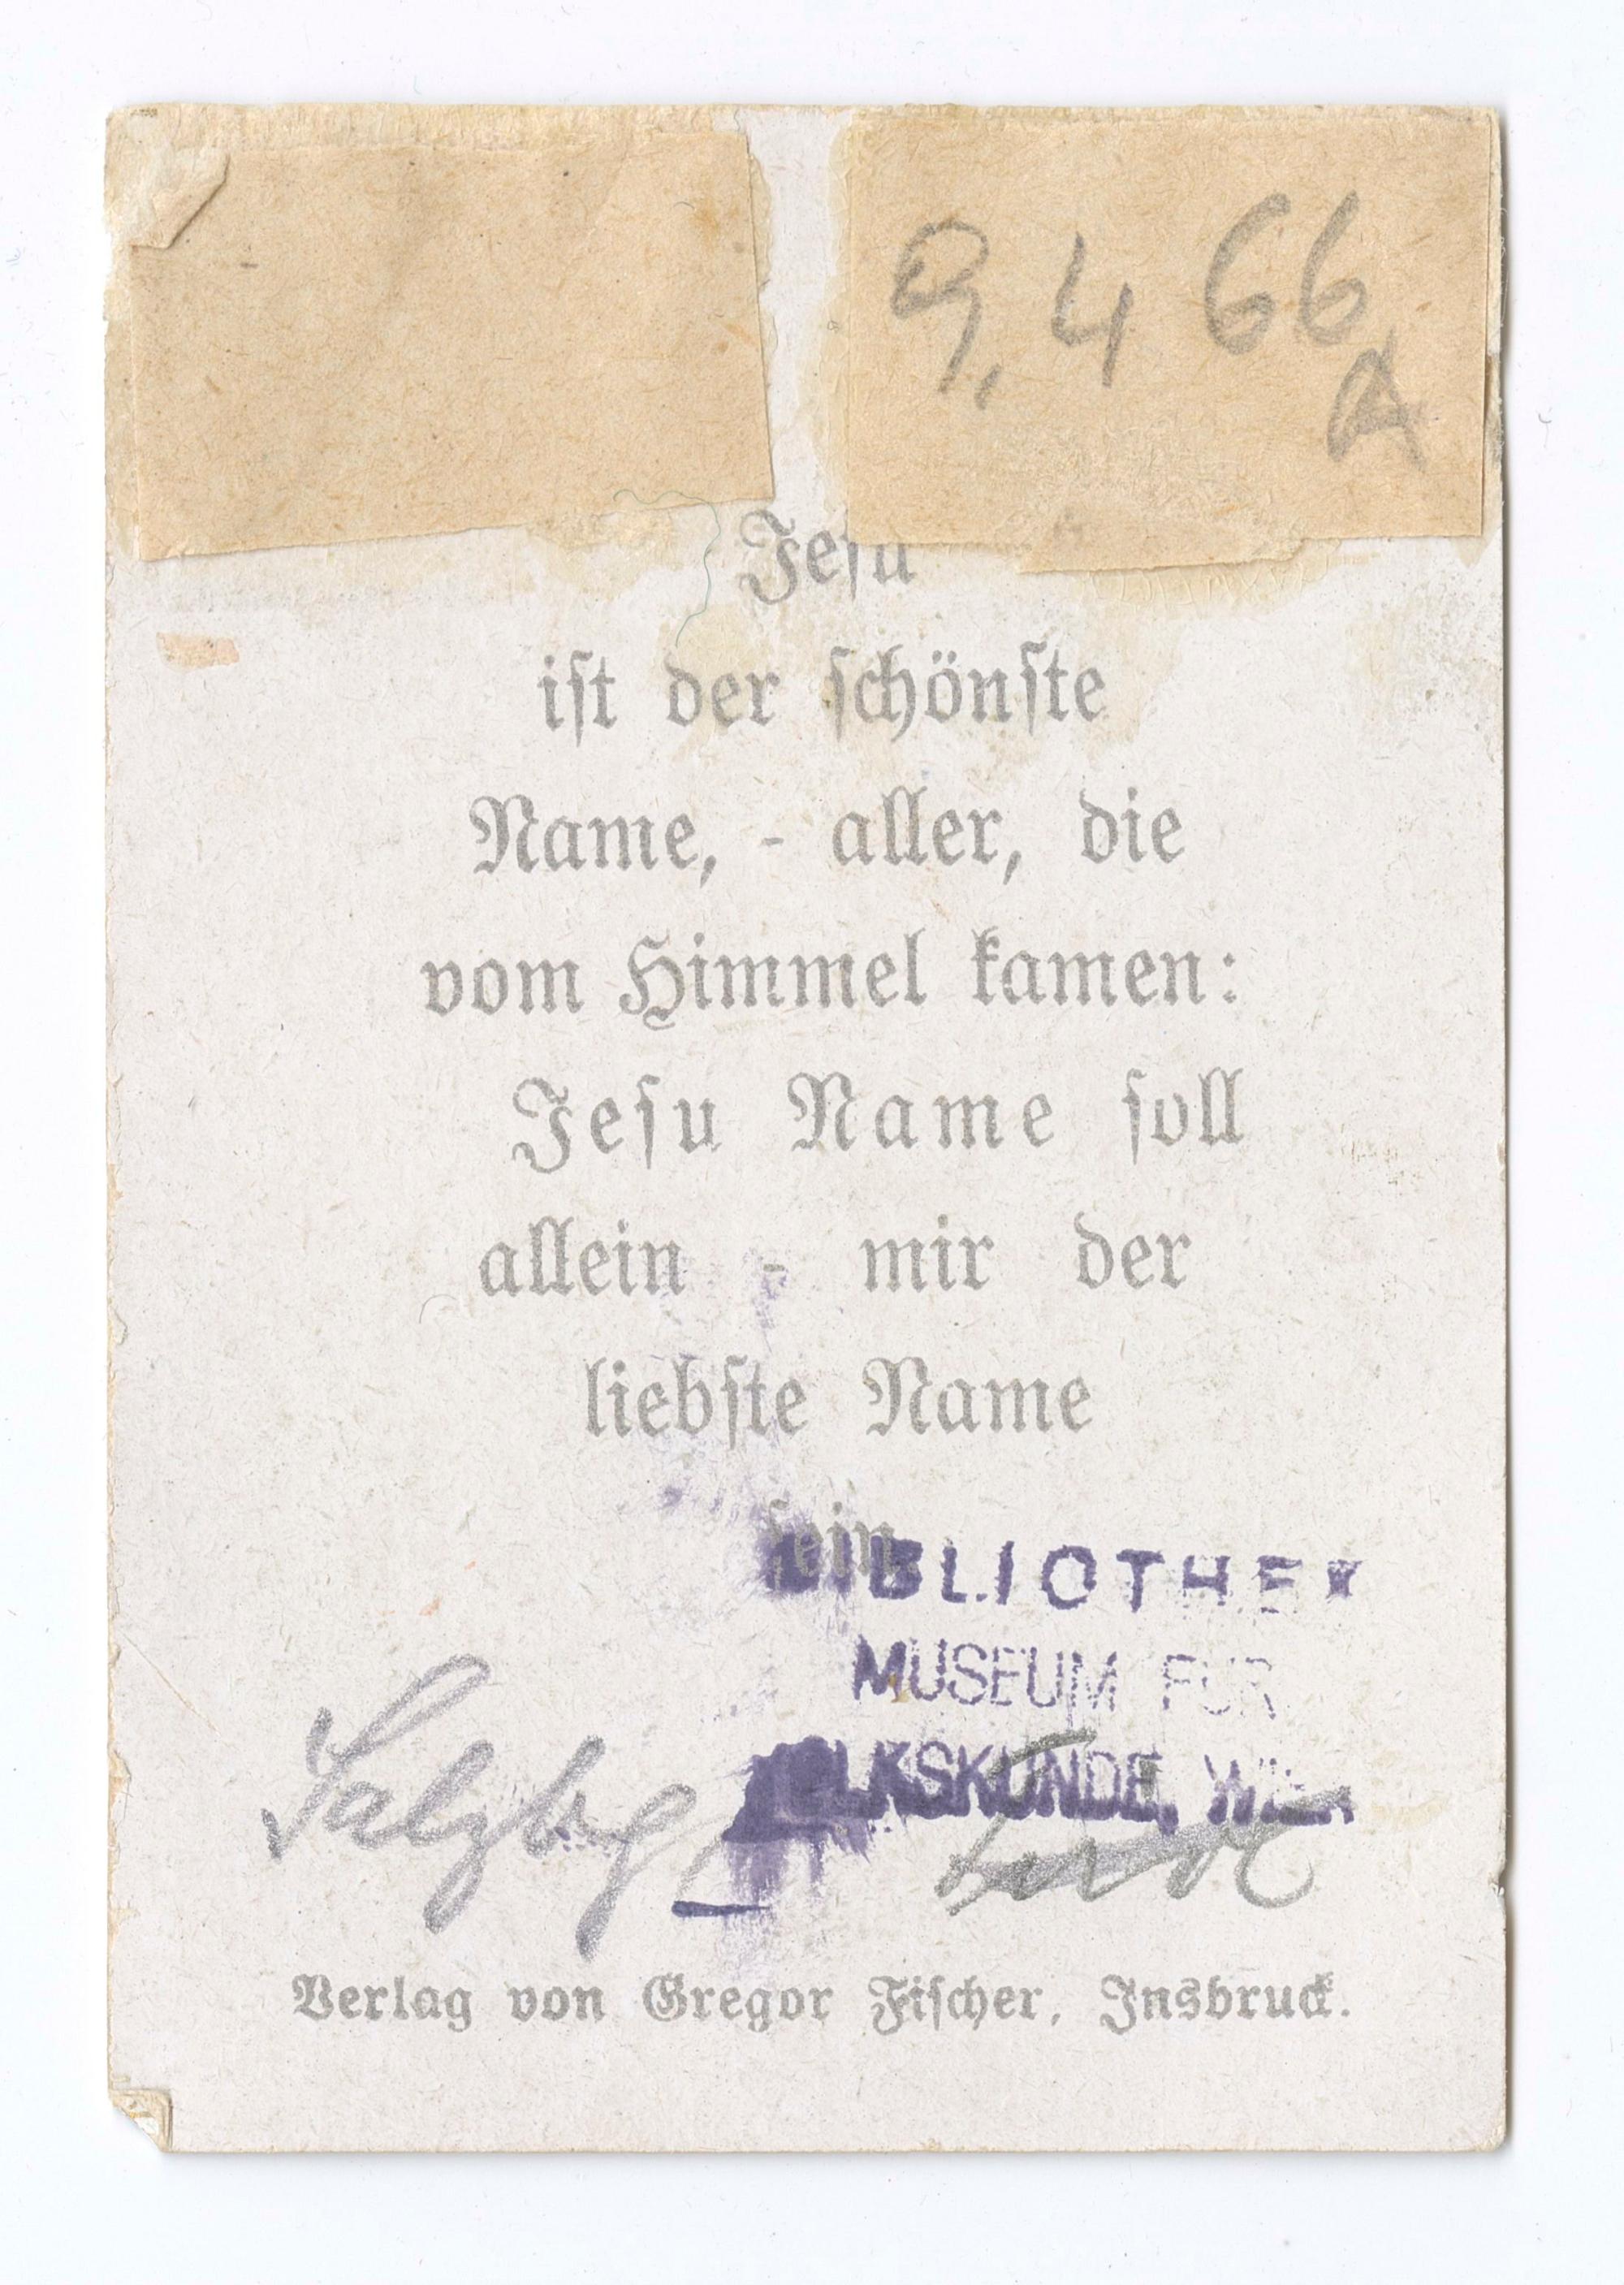 9,466
A
Jesu
ist der schönste
Name, - aller, die
vom Himmel kamen:
Jesu Name soll
allein - mir der
liebste Name
sein
BIBLIOTHEK
MUSEUM FÜR
VOLKSKUNDE, WIEN
Salzbg
Verlag von Gregor Fischer, Insbruck.